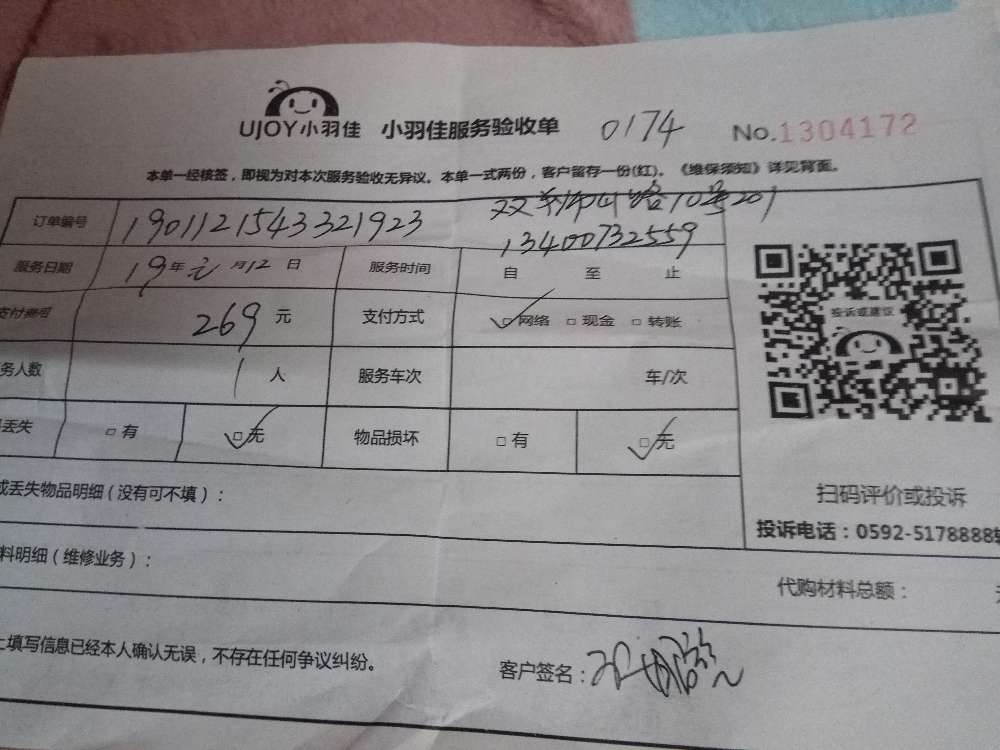 UJOY小羽佳 小羽佳服务验收单 0174 No.1304172
本单一经核签，即视为对本次服务验收无异议。本单一式两份，客户留存一份(红)。《维保须知》详见背面。
订单编号 1901121543321923 路10号201
13400732559
服务日期 19年元月12日 服务时间 自 至 止
支付费用 269元 支付方式 ☑网络 □现金 □转账
务人数 1人 服务车次 车/次
丢失 □有 ☑无 物品损坏 □有 ☑无
或丢失物品明细（没有可不填）：
料明细（维修业务）：
代购材料总额：
上填写信息已经本人确认无误，不存在任何争议纠纷。
客户签名：
投诉或建议
扫码评价或投诉
投诉电话：0592-5178888转